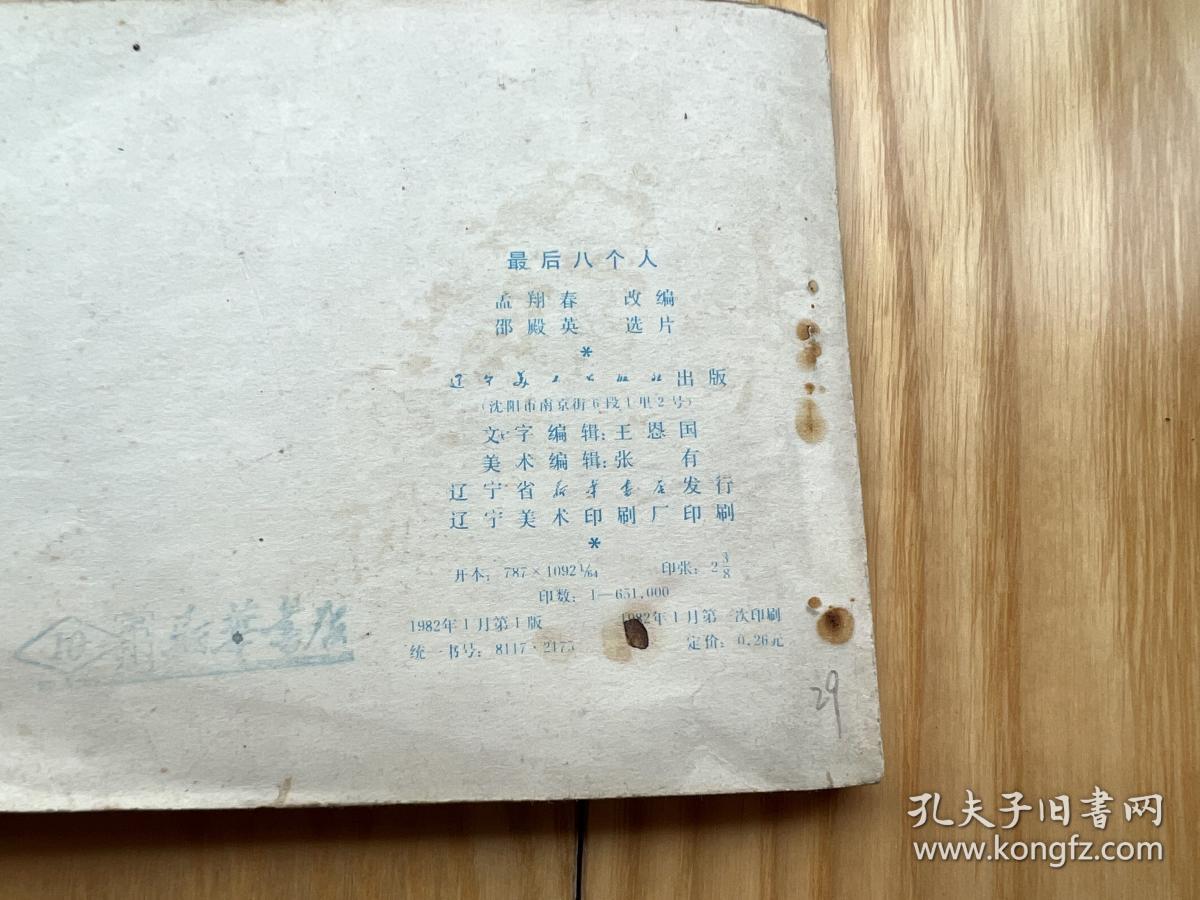 最后八个人
孟翔春 改编
邵殿英 选片
*
辽宁美术出版社出版
(沈阳市南京街6段1里2号)
文字编辑:王恩国
美术编辑:张 有
辽宁省新华书店发行
辽宁美术印刷厂印刷
*
开本:787×1092 1/64 印张:2 3/8
印数:1—651,000
1982年1月第1版 1982年1月第一次印刷
统一书号:8117·2175 定价:0.26元
新华书店
29
孔夫子旧书网
www.kongfz.com